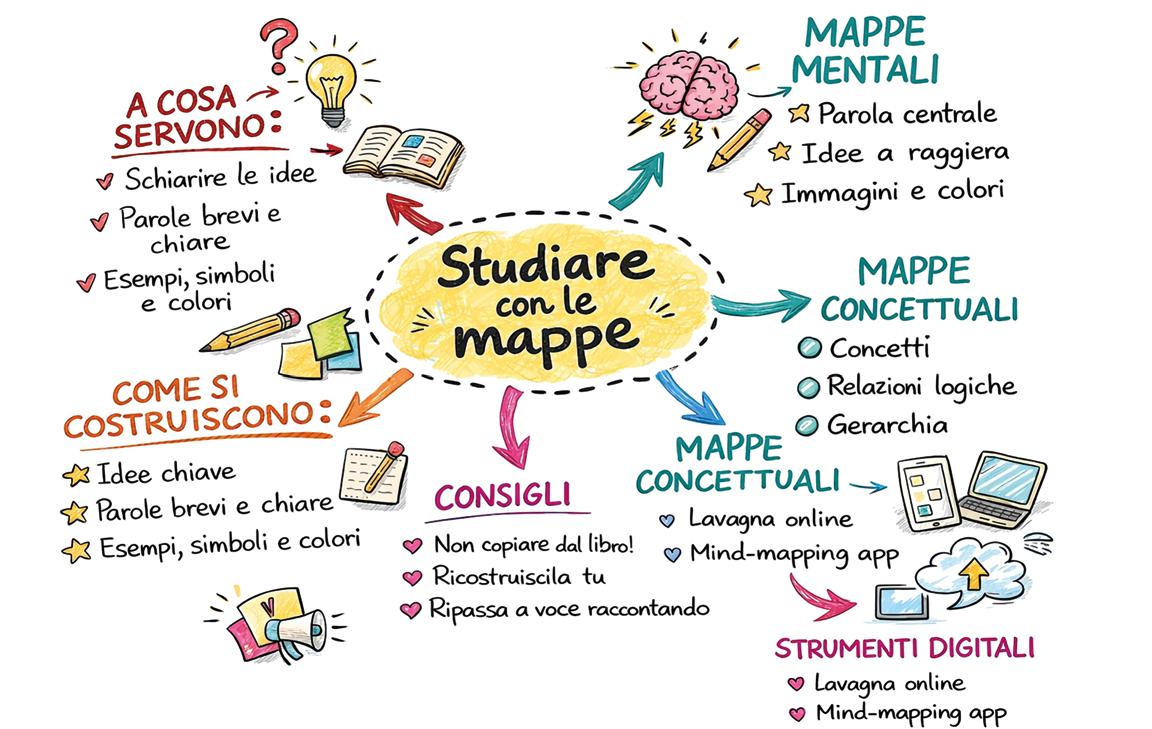 Studiare
con le
mappe
A COSA
SERVONO:
Schiarire le idee
Parole brevi e
chiare
Esempi, simboli
e colori
MAPPE
MENTALI
Parola centrale
Idee a raggiera
Immagini e colori
MAPPE
CONCETTUALI
Concetti
Relazioni logiche
Gerarchia
COME SI
COSTRUISCONO:
Idee chiave
Parole brevi e chiare
Esempi, simboli e colori
CONSIGLI
Non copiare dal libro!
Ricostruiscila tu
Ripassa a voce raccontando
MAPPE
CONCETTUALI
Lavagna online
Mind-mapping app
STRUMENTI DIGITALI
Lavagna online
Mind-mapping app